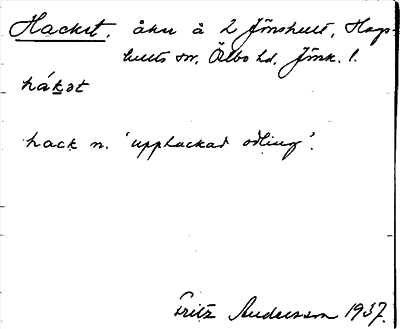 Hacket, åker å 2 Jönshult, Hags-
hults sn. Östbo hd. Jönk. l.
hákət
hack n. 'upphackad odling'.
Fritz Andersson 1937.